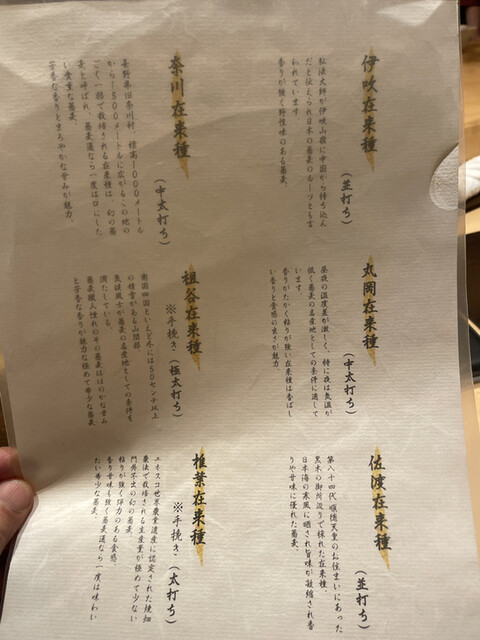 伊吹在来種
(並打ち)
弘法大師が伊吹山麓に中国から持ち込ん
だと伝えられ日本の蕎麦のルーツとも言
われています
香りが強く野性味のある蕎麦。
奈川在来種
(中太打ち)
長野県旧奈川村、標高1000メートル
から1500メートルに広がるこの地の
ごく一部で栽培される在来種は、幻の蕎
麦と呼ばれ、蕎麦通なら一度は口にした
い貴重な蕎麦。
芳香な香りとまろやかな甘みが魅力。
丸岡在来種
(中太打ち)
昼夜の温度差が激しく、特に夜は気温が
低く蕎麦の名産地としての条件に適して
います。
香りがたかく粘りが強い在来種は香ばし
い香りと食感の良さが魅力
祖谷在来種
※手挽き(極太打ち)
南国四国といえど冬には50センチ以上
の積雪がある山間部
気候風土が蕎麦の名産地としての条件を
満たしている。
蕎麦職人憧れのその蕎麦はほのかな甘み
と芳香な香りが魅力な極めて希少な蕎麦
佐渡在来種
(並打ち)
第八十四代 順徳天皇のお住まいにあった
黒木の御所辺りで採れた在来種。
日本海の寒風に晒され旨味が凝縮され香
りや甘味に優れた蕎麦。
椎葉在来種
※手挽き(太打ち)
ユネスコ世界農業遺産に認定された焼畑
農法で栽培される生産量が極めて少ない
門外不出の幻の蕎麦。
粘りが強く弾力のある食感、
香り甘味も強く蕎麦通なら一度は味わい
たい希少な蕎麦。